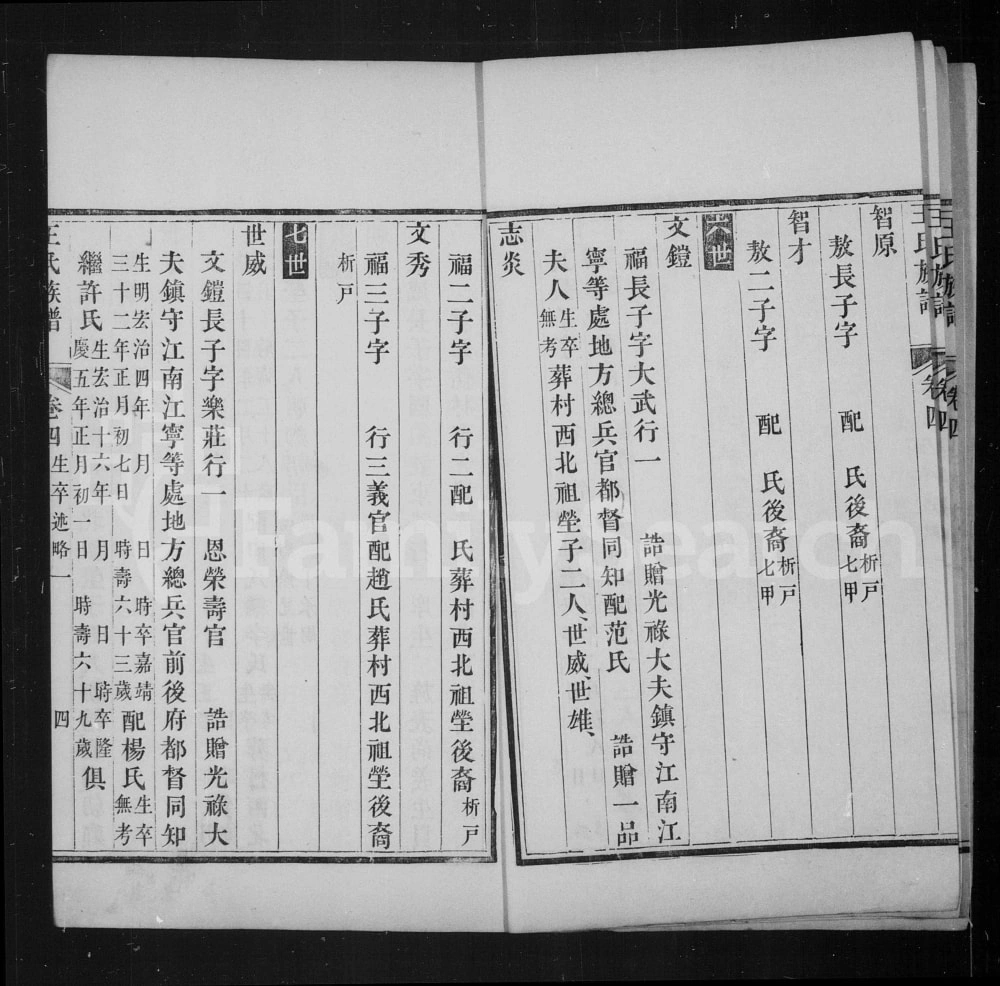 王氏族譜
卷四
智原
敖長子字 配 氏後裔析戸七甲
智才
敖二子字 配 氏後裔析戸七甲
六世
文鎧
福長子字大武行一 誥贈光祿大夫鎮守江南江
寧等處地方總兵官都督同知配范氏 誥贈一品
夫人生卒無考葬村西北祖塋子二人世威、世雄、
志炎
福二子字 行二配 氏葬村西北祖塋後裔析戸
文秀
福三子字 行三義官配趙氏葬村西北祖塋後裔
析戸
七世
世威
文鎧長子字樂莊行一 恩榮壽官 誥贈光祿大
夫鎮守江南江寧等處地方總兵官前後府都督同知
生明宏治四年 月 日 時卒嘉靖三十二年正月初七日 時壽六十三歲配楊氏生卒無考
繼許氏生宏治十六年 月 日 時卒隆慶五年正月初一日 時壽六十九歲俱
王氏族譜 卷四 生卒述略一 四
FamilySearch